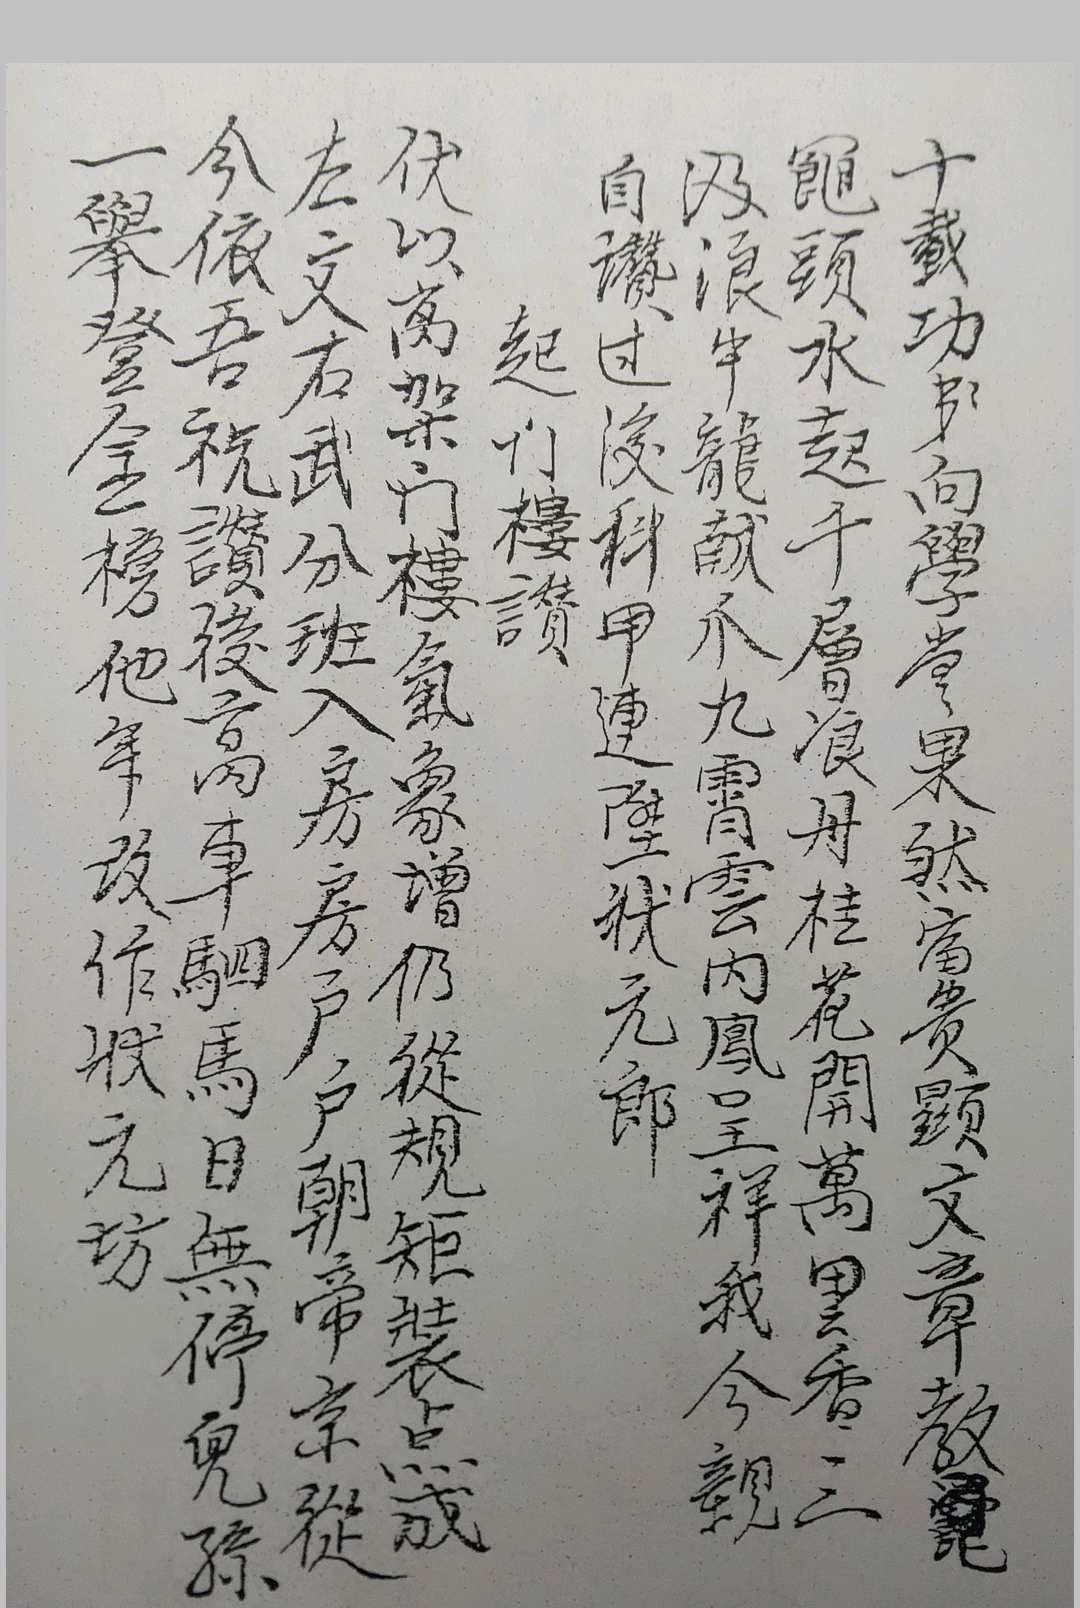 十載功夫向學堂果然富貴顯文章教
頭水起千層浪丹桂花開萬里香三
汲浪中龍献爪九霄雲内鳳呈祥我今親
自讚过後科甲連陞狀元郎
起门樓讃
伏以萬架门樓氣象增仍從規矩裝点成
左文右武分班入房房戶戶朝帝京從
今依吾祝讃後高車駟馬日無停兒孫
一舉登金榜他年改作狀元坊